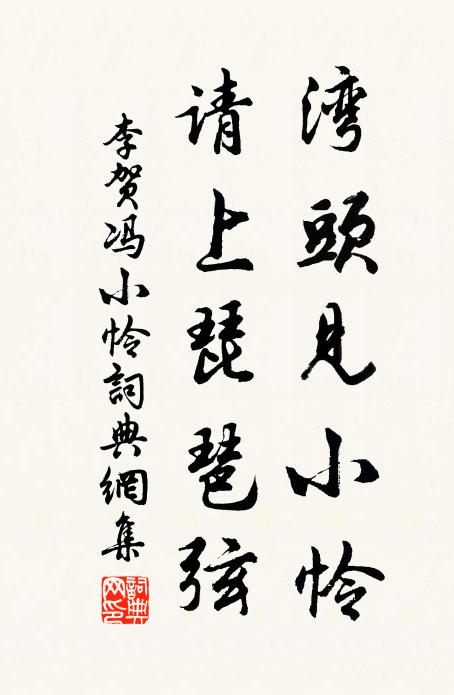 湾頭見小怜
请上琵琶弦
李贺冯小怜詞典網集
詞典网印